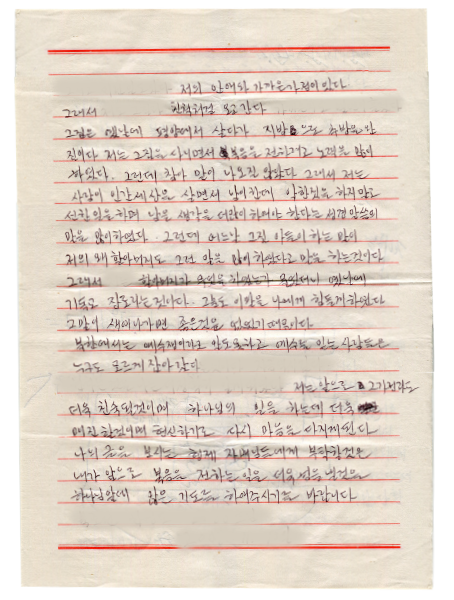 저의 안해와 가까운 가정이 있다
그래서 친척처럼 오고 간다
그집은 옛날에 평양에서 살다가 지방으로 추방을 받
집이다 저는 그집을 사귀면서 복음을 전하려고 노력을 많이
하였다. 그런데 참아 말이 나오질 않았다 그래서 저는
사람이 인간세상을 살면서 남이한데 악한일을 하지말고
선한일을 하며 남을 생각을 더많이 하여야 한다는 성경말씀의
말을 많이 하였다. 그런데 어느날 그집 아들이 하는 말이
저의 할아버지도 그런 말을 많이 하였다고 말을 하는것이다
그래서 할아버지가 무엇을 하였는가 물었더니 옛날에
기독교 집도라는 것이다. 그도 이말을 나에게 힘들게 하였다
그말이 새여나가면 좋은것을 없었기 때문이다.
북한에서는 예수쟁이라고 말도못하고 예수를 믿는 사람들은
누구도 모르게 잡아 갔다
저는 앞으로 그가정과도
더욱 친숙될것이며 하나님의 일을 하는데 더욱
매진할것이며 헌신하기로 다시 마음을 다지게된다
나의 글을 보시는 형제 자매님들에게 부탁할것은
내가 앞으로 복음을 전하는 일을 더욱
하나님앞에 많은 기도를 하여주시기를 바랍니다